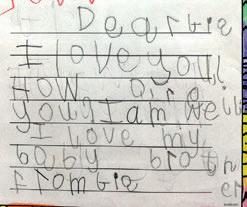 Dear Gia
I love you!
How are
you? I am well
I love my
baby broth
from Gia er